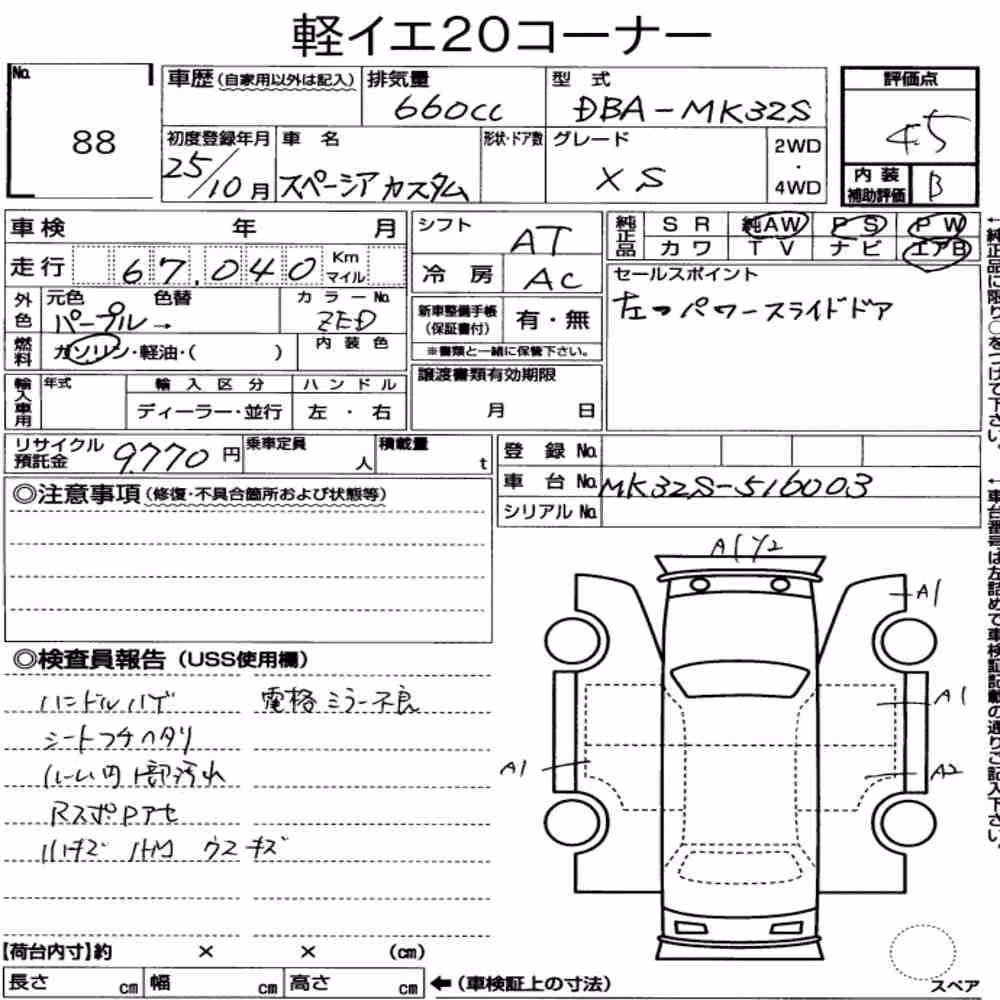 軽イエ20コーナー
No. 88
車歴(自家用以外は記入) 排気量 660cc 型式 DBA-MK32S 評価点 4.5
初度登録年月 25/10月 車名 スペーシアカスタム 形状・ドア数 グレード XS 2WD・4WD 内装補助評価 B
車検 年 月 シフト AT 純正品 SR 純AW PS PW
カワ TV ナビ エアB
走行 67,040 Km マイル 冷房 AC セールスポイント
左→パワースライドドア
外色 元色 パープル→ 色替 カラーNo. ZED 新車整備手帳(保証書付) 有・無
燃料 ガソリン・軽油・( ) 内装色 ※書類と一緒に保管下さい。
輸入車用 年式 輸入区分 ハンドル 譲渡書類有効期限
ディーラー・並行 左・右 月 日
リサイクル預託金 9770円 乗車定員 人 積載量 t 登録No.
車台No. MK32S-516003
シリアルNo.
◎注意事項(修復・不具合箇所および状態等)
A1 Y2
A1
◎検査員報告(USS使用欄)
ハンドルハゲ 電格ミラー不良
A1
シートコゲヘタリ
A1
A2
ルーム内1部汚れ
RスポPアセ
小キズ 小凹 ウスキズ
【荷台内寸】約 × × (cm)
長さ cm 幅 cm 高さ cm ←(車検証上の寸法) スペア
←純正品に限り○をつけて下さい。
←車台番号は左詰めで車検証記載の通りご記入下さい。